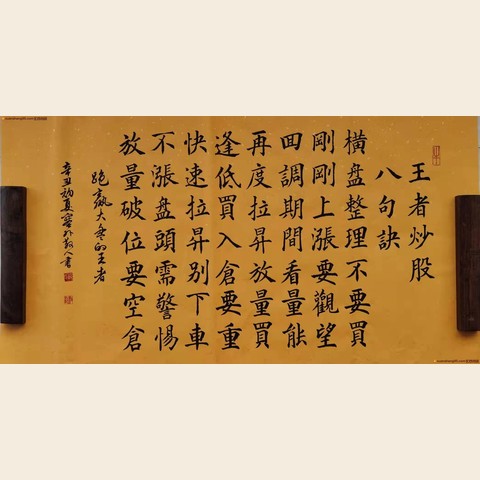 王者炒股
八句訣
橫盤整理不要買
剛剛上漲要觀望
回調期間看量能
再度拉昇放量買
逢低買入倉要重
快速拉昇别下車
不漲盤頭需警惕
放量破位要空倉
跑贏大盘的王者
辛丑初夏
書